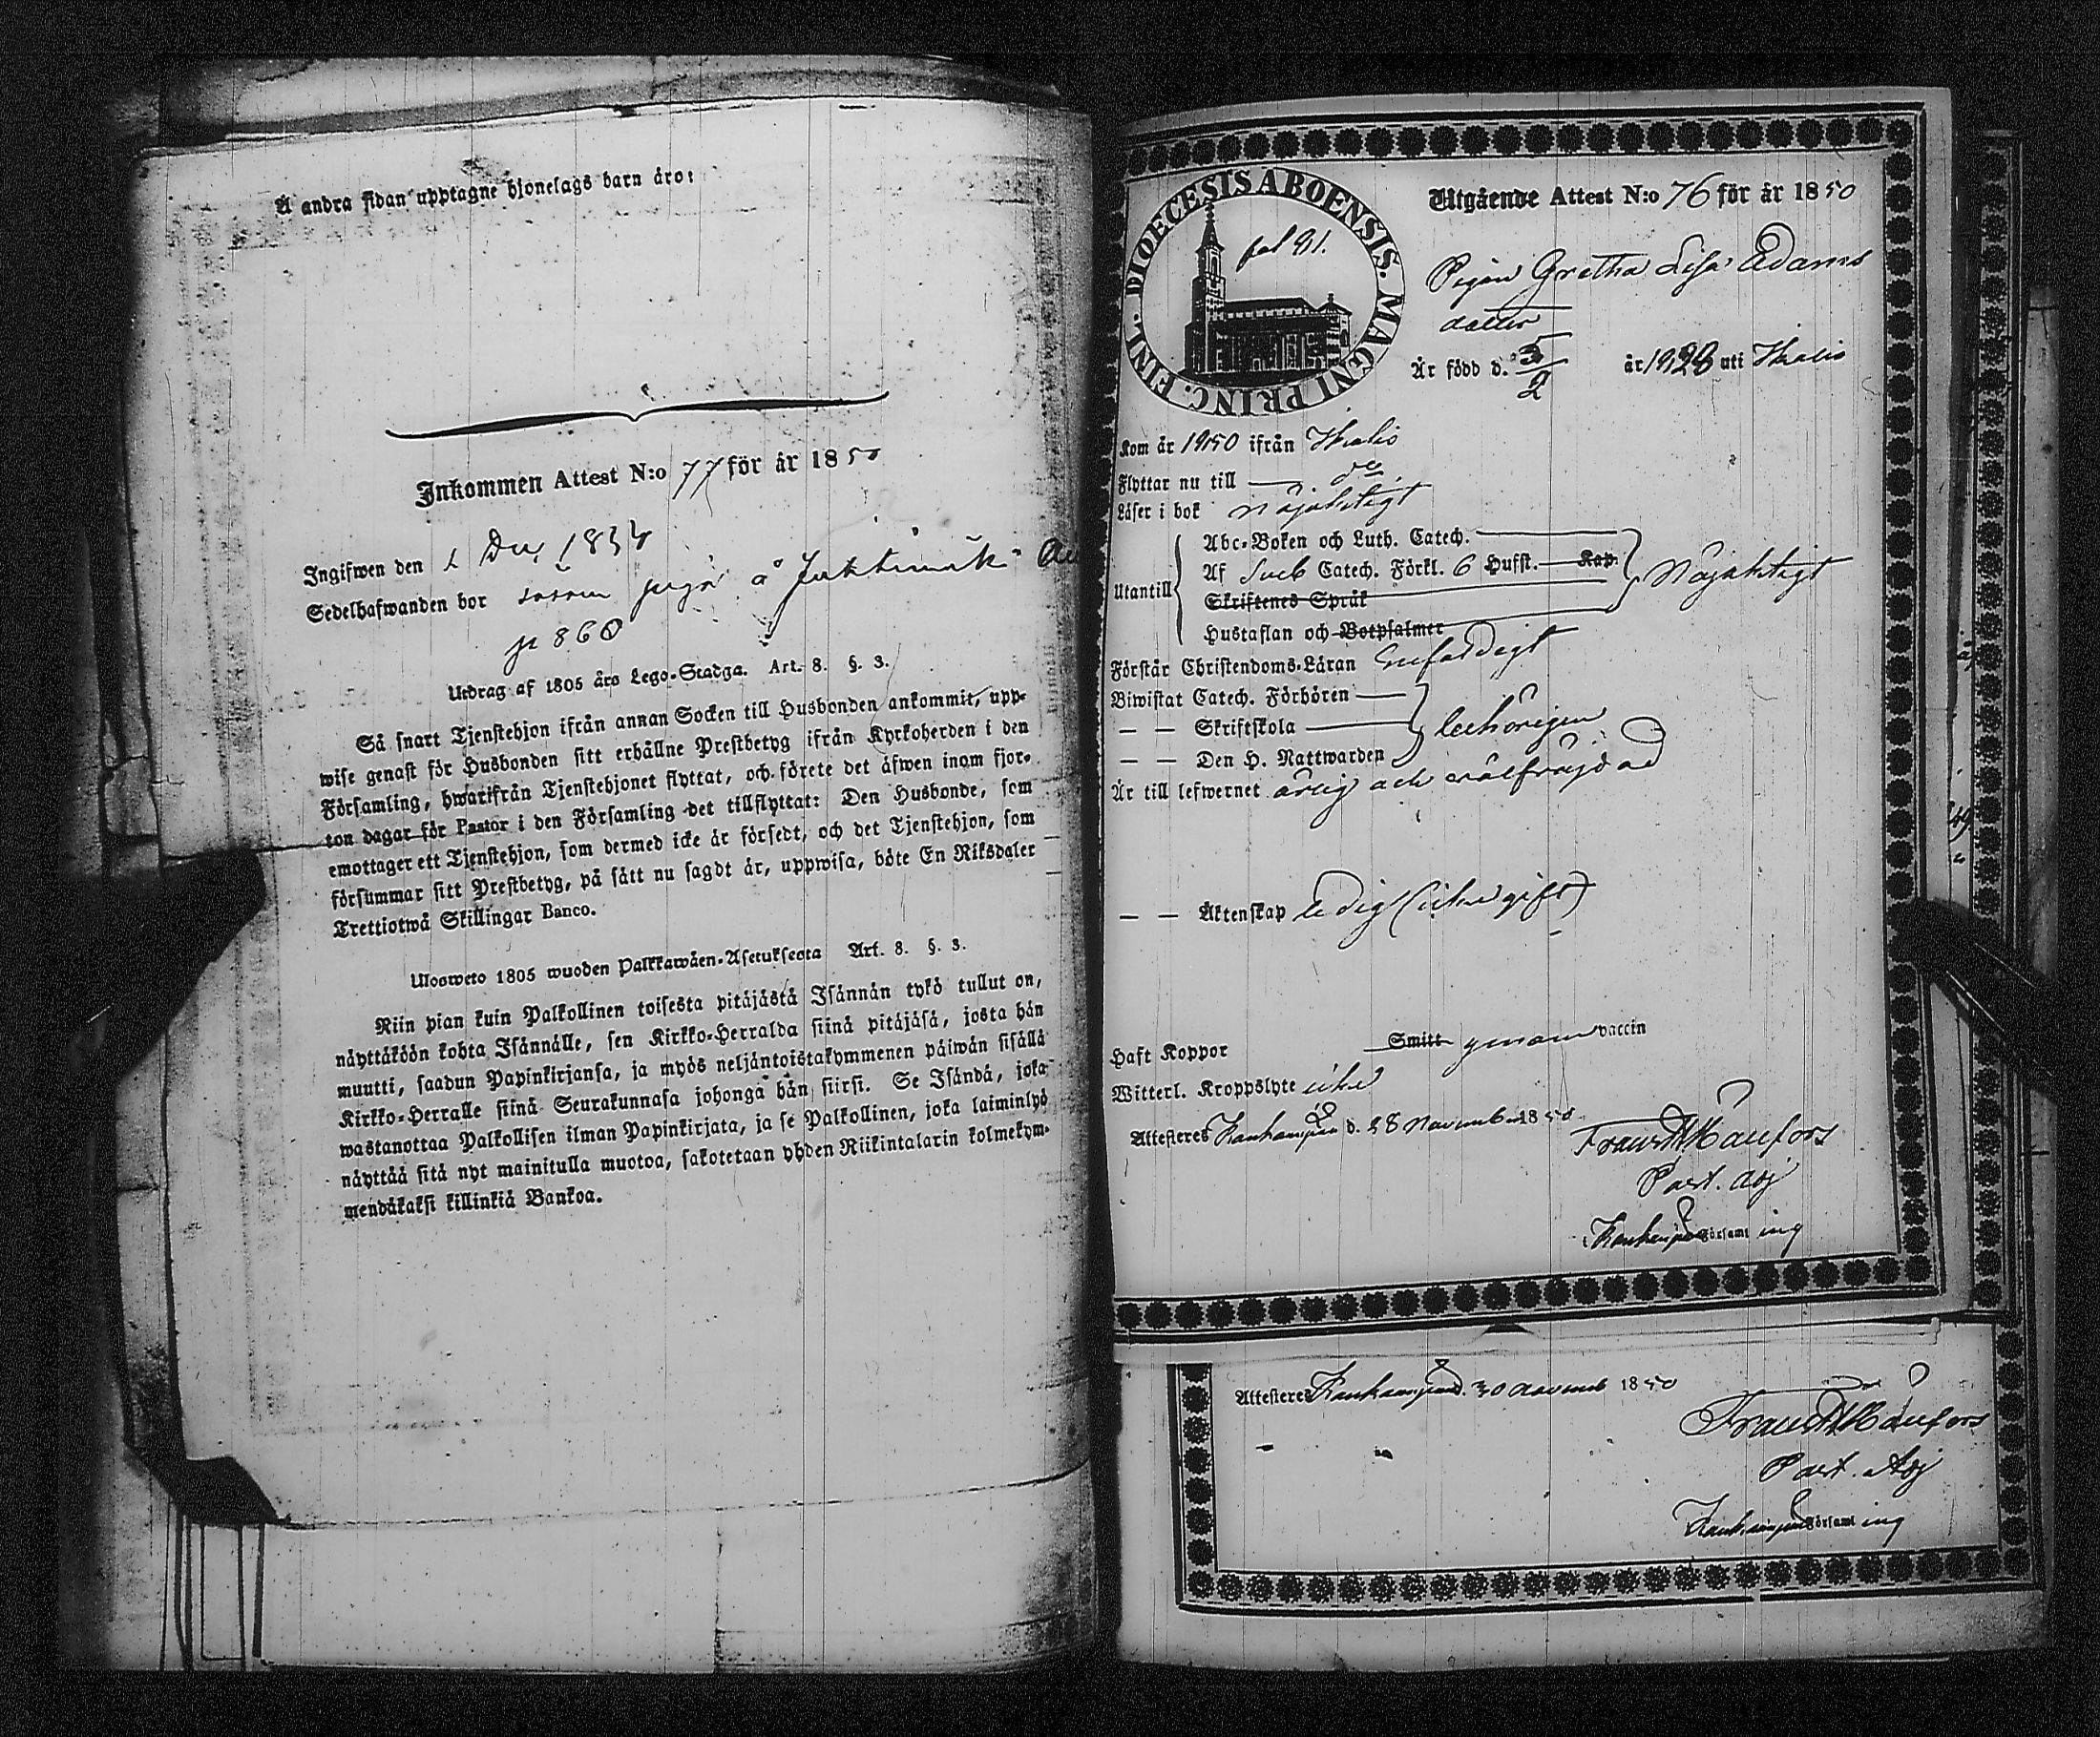 Å andra sidan upptagne hjonelags barn äro:
Inkommen Attest N:o 77 för år 1850
Ingifwen den 1 Dec 18
Sedelhafwanden bor såsom piga å
p 860
Utdrag af 1805 års Lego-Stadga. Art. 8. §. 3.
Så snart Tjenstehjon ifrån annan Socken till Husbonden ankommit, upp-
wise genast för Husbonden sitt erhållne Prestbetyg ifrån Kyrkoherden i den
Församling, hwarifrån Tjenstehjonet flyttat, och förete det äfwen inom fjor-
ton dagar för Pastor i den Församling det tillflyttat: Den Husbonde, som
emottager ett Tjenstehjon, som dermed icke är försedt, och det Tjenstehjon, som
försummar sitt Prestbetyg, på sätt nu sagdt är, uppwisa, böte En Riksdaler
Trettiotwå Skillingar Banco.
Ulosweto 1805 wuoden Palkkawäen-Asetuksesta Art. 8. §. 3.
Niin pian kuin Palkollinen toisesta pitäjästä Isännän tykö tullut on,
näyttäköön kohta Isännälle, sen Kirkko-Herralda siinä pitäjäsä, josta hän
muutti, saadun Papinkirjansa, ja myös neljäntoistakymmenen päiwän sisällä
Kirkko-Herralle siinä Seurakunnasa johonga hän siirsi. Se Isändä, joka
wastanottaa Palkollisen ilman Papinkirjata, ja se Palkollinen, joka laiminlyö
näyttää sitä nyt mainitulla muotoa, sakotetaan yhden Riikintalarin kolmekym-
mendäkaksi killinkiä Bankoa.
DIOECESIS ABOENSIS. MAGNI PRINC. FINL.
fol 91.
Utgående Attest N:o 76 för år 1850
Pigan Gretha Lisa Adams
dotter
Är född d. 5/2 år 1828 uti Ikalis
Kom år 1850 ifrån Ikalis
Flyttar nu till — do
Läser i bok Nöjaktigt
Utantill
Abc-Boken och Luth. Catech.
Af Sveb Catech. Förkl. 6 Hufst. Kap.
Skriftenes Språk
Hustaflan och Botpsalmer
Nöjaktigt
Förstår Christendoms-Läran Enfaldigt
Biwistat Catech. Förhören
— — Skriftskola
— — Den H. Nattwarden
behörigen
Är till lefwernet ärlig och välfrejdad
— — Äktenskap ledig (icke gift)
Haft Koppor Smitt genom vaccin
Witterl. Kroppslyte icke
Attesteres Kankaanpää d. 28 November 1850
Past. Adj
i Kankaanpää Församling
Attesteres Kankaanpää d. 30 Novemb 1850
Past. Adj
Kankaanpää Församling